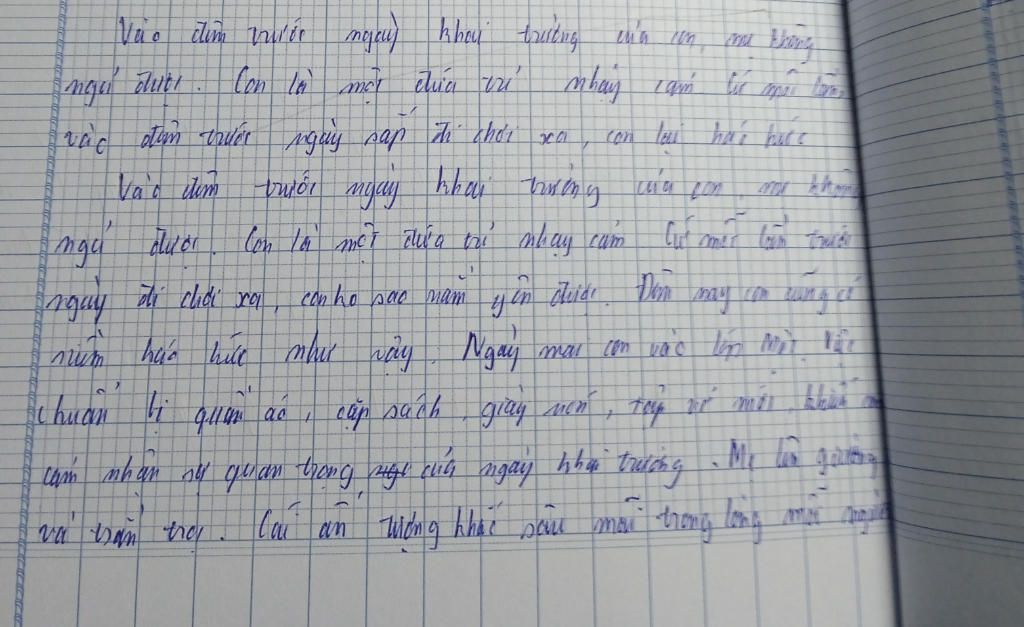 Vào đêm trước ngày khai trường của con, mẹ không
ngủ được. Con là một đứa trẻ nhạy cảm. Cứ mỗi lần,
vào đêm trước ngày sắp đi chơi xa, con lại háo hức
Vào đêm trước ngày khai trường của con, mẹ không
ngủ được. Con là một đứa trẻ nhạy cảm. Cứ mỗi lần trước
ngày đi chơi xa, con ho sao nằm yên được. Đêm nay con cũng có
niềm háo hức như vậy. Ngày mai con vào lớp một. Việc
chuẩn bị quần áo, cặp sách, giày nón, tập vở mới, khiến con
cảm nhận sự quan trọng của ngày khai trường. Mẹ lên giường
và trằn trọc. Cái ấn tượng khắc sâu mãi trong lòng mỗi người